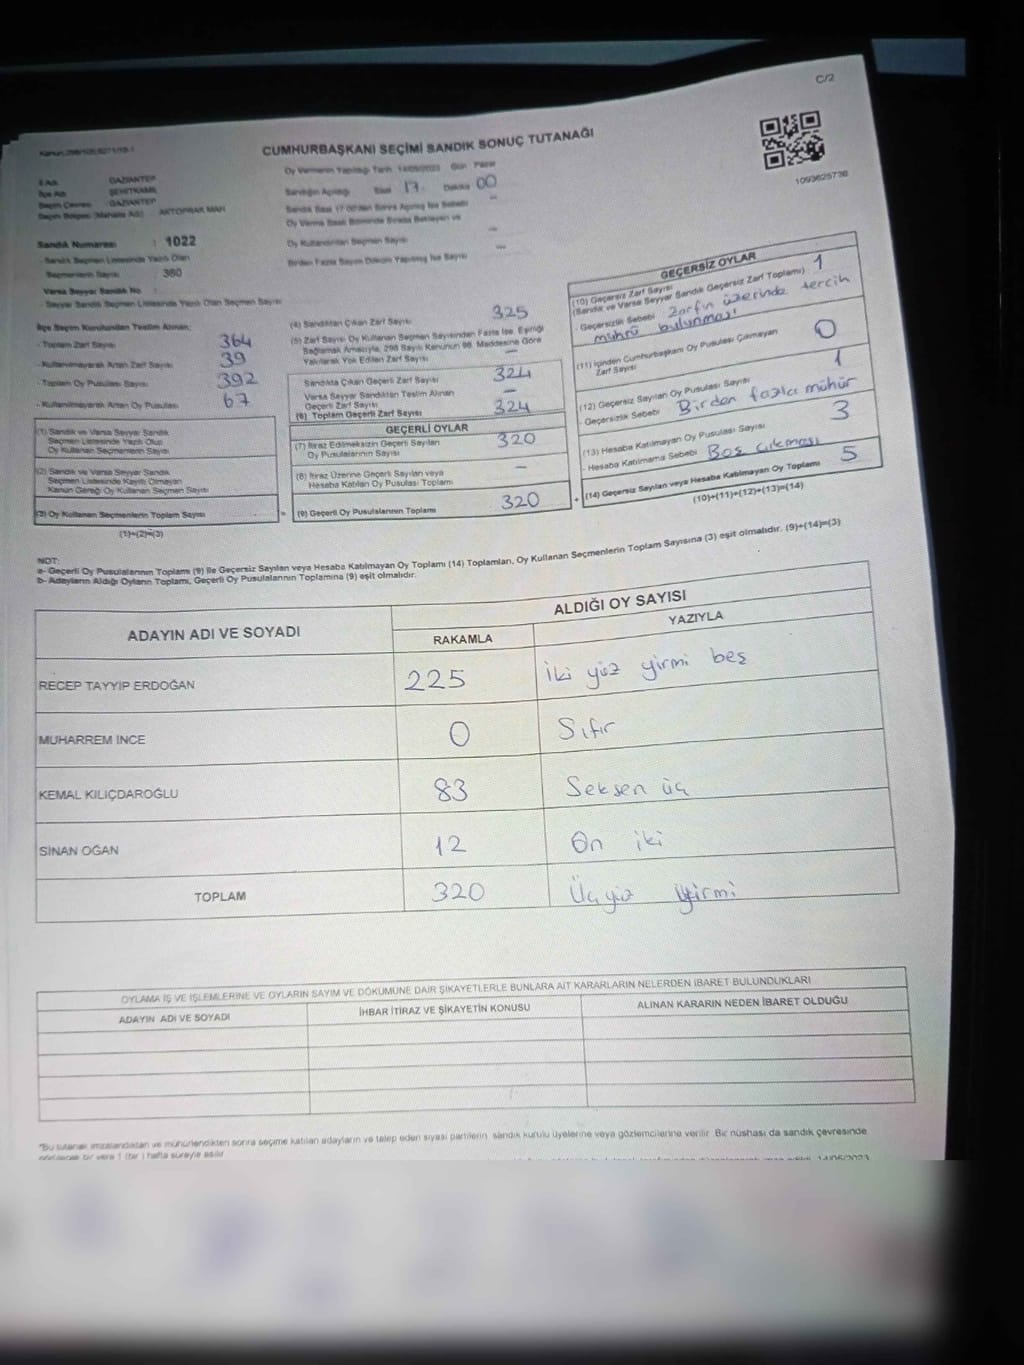 C/2
CUMHURBAŞKANI SEÇİMİ SANDIK SONUÇ TUTANAĞI
1093625736
İl Adı : GAZİANTEP
İlçe Adı : ŞEHİTKAMİL
Seçim Çevresi : GAZİANTEP
Seçim Bölgesi (Mahalle Adı) : AKTOPRAK MAH
Sandık Numarası : 1022
Sandık Seçmen Listesinde Yazılı Olan
Seçmenlerin Sayısı : 360
Varsa Seyyar Sandık No :
- Seyyar Sandık Seçmen Listesinde Yazılı Olan Seçmen Sayısı
Oy Vermenin Yapıldığı Tarih 14/05/2023 Gün Pazar
Sandığın Açıldığı Saat 17 Dakika 00
Sandık Saat 17:00'den Sonra Açılmış İse Sebebi —
Oy Verme Saati Bitiminde Sırada Bekleyen ve
Oy Kullandırılan Seçmen Sayısı —
Birden Fazla Sayım Döküm Yapılmış İse Sayısı —
İlçe Seçim Kurulundan Teslim Alınan;
- Toplam Zarf Sayısı 364
- Kullanılmayarak Artan Zarf Sayısı 39
- Toplam Oy Pusulası Sayısı 392
- Kullanılmayarak Artan Oy Pusulası 67
(1) Sandık ve Varsa Seyyar Sandık
Seçmen Listesinde Yazılı Olup
Oy Kullanan Seçmenlerin Sayısı
(2) Sandık ve Varsa Seyyar Sandık
Seçmen Listesinde Kayıtlı Olmayan
Kanun Gereği Oy Kullanan Seçmen Sayısı
(3) Oy Kullanan Seçmenlerin Toplam Sayısı
(1)+(2)=(3)
(4) Sandıktan Çıkan Zarf Sayısı 325
(5) Zarf Sayısı Oy Kullanan Seçmen Sayısından Fazla İse, Eşitliği
Sağlamak Amacıyla, 298 Sayılı Kanunun 98. Maddesine Göre
Yakılarak Yok Edilen Zarf Sayısı —
Sandıkta Çıkan Geçerli Zarf Sayısı 324
Varsa Seyyar Sandıktan Teslim Alınan
Geçerli Zarf Sayısı —
(6) Toplam Geçerli Zarf Sayısı 324
GEÇERLİ OYLAR
(7) İtiraz Edilmeksizin Geçerli Sayılan
Oy Pusulalarının Sayısı 320
(8) İtiraz Üzerine Geçerli Sayılan veya
Hesaba Katılan Oy Pusulası Toplamı —
= (9) Geçerli Oy Pusulalarının Toplamı 320 +
GEÇERSİZ OYLAR
(10) Geçersiz Zarf Sayısı
(Sandık ve Varsa Seyyar Sandık Geçersiz Zarf Toplamı) : 1
- Geçersizlik Sebebi Zarfın üzerinde tercih
mührü bulunması
(11) İçinden Cumhurbaşkanı Oy Pusulası Çıkmayan
Zarf Sayısı 0
(12) Geçersiz Sayılan Oy Pusulası Sayısı 1
- Geçersizlik Sebebi Birden fazla mühür
(13) Hesaba Katılmayan Oy Pusulası Sayısı 3
- Hesaba Katılmama Sebebi Boş çıkması
(14) Geçersiz Sayılan veya Hesaba Katılmayan Oy Toplamı 5
(10)+(11)+(12)+(13)=(14)
NOT:
a- Geçerli Oy Pusulalarının Toplamı (9) ile Geçersiz Sayılan veya Hesaba Katılmayan Oy Toplamı (14) Toplamları, Oy Kullanan Seçmenlerin Toplam Sayısına (3) eşit olmalıdır. (9)+(14)=(3)
b- Adayların Aldığı Oyların Toplamı, Geçerli Oy Pusulalarının Toplamına (9) eşit olmalıdır.
ADAYIN ADI VE SOYADI
ALDIĞI OY SAYISI
RAKAMLA YAZIYLA
RECEP TAYYİP ERDOĞAN 225 iki yüz yirmi beş
MUHARREM İNCE 0 Sıfır
KEMAL KILIÇDAROĞLU 83 Seksen üç
SİNAN OĞAN 12 On iki
TOPLAM 320 Üçyüz yirmi
OYLAMA İŞ VE İŞLEMLERİNE VE OYLARIN SAYIM VE DÖKÜMÜNE DAİR ŞİKAYETLERLE BUNLARA AİT KARARLARIN NELERDEN İBARET BULUNDUKLARI
ADAYIN ADI VE SOYADI İHBAR İTİRAZ VE ŞİKAYETİN KONUSU ALINAN KARARIN NEDEN İBARET OLDUĞU
*Bu tutanak imzalandıktan ve mühürlendikten sonra seçime katılan adayların ve talep eden siyasi partilerin sandık kurulu üyelerine veya gözlemcilerine verilir. Bir nüshası da sandık çevresinde
görülecek bir yere 1 (bir) hafta süreyle asılır.
14/05/2023